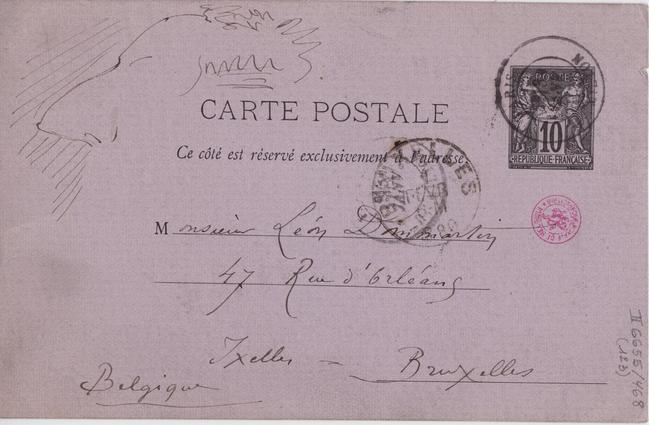 CARTE POSTALE
Ce côté est réservé exclusivement à l'adresse.
POSTE
10
RÉPUBLIQUE FRANÇAISE
Monsieur Léon Dommartin
47 Rue d'Orléans
Ixelles - Bruxelles
Belgique
II 6655/468